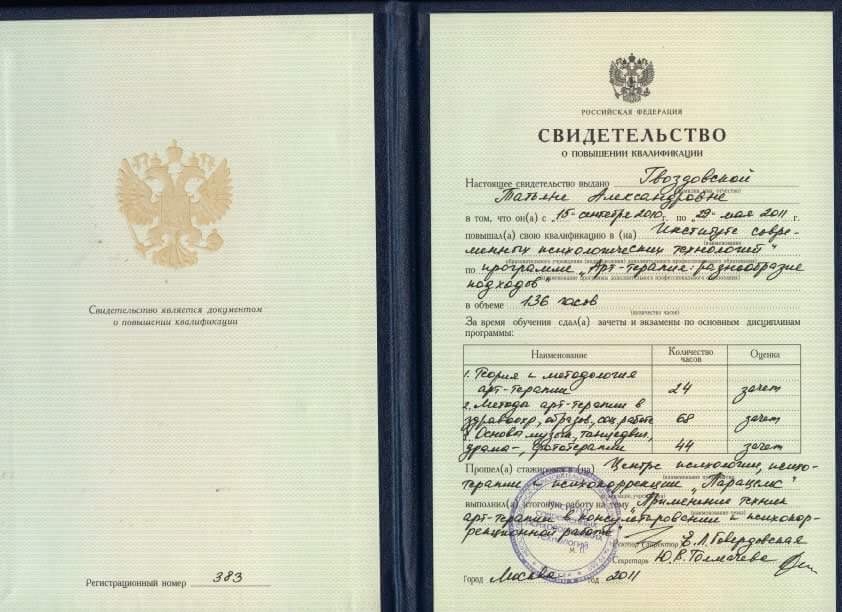 Свидетельство является документом
о повышении квалификации
Регистрационный номер 383
РОССИЙСКАЯ ФЕДЕРАЦИЯ
СВИДЕТЕЛЬСТВО
О ПОВЫШЕНИИ КВАЛИФИКАЦИИ
Настоящее свидетельство выдано Гвоздовской
(фамилия, имя, отчество)
Татьяне Александровне
в том, что он(а) с „15" сентября 2010 г. по „29" мая 2011 г.
повышал(а) свою квалификацию в (на) „Институте совре-
(наименование
менных психологических технологий"
образовательного учреждения (подразделения) дополнительного профессионального образования)
по программе „Арт-терапия: разнообразие
(наименование программы дополнительного профессионального образования)
подходов"
в объеме 136 часов
(количество часов)
За время обучения сдал(а) зачеты и экзамены по основным дисциплинам
программы:
Наименование Количество часов Оценка
1. Теория и методология
арт-терапии 24 зачет
2. Методы арт-терапии в
здравоохр., образов., соц. работе 68 зачет
3. Основы музык., танцедвиг.,
драма-, фототерапии 44 зачет
Прошел(а) стажировку в (на) Центре психологии, психо-
терапии и психокоррекции „Парацельс"
выполнил(а) итоговую работу на тему „Применение техник
арт-терапии в консультировании и психокор-
рекционной работе"
М. П.
Ректор Директор
Секретарь Ю.В. Толмачева
Город Москва год 2011